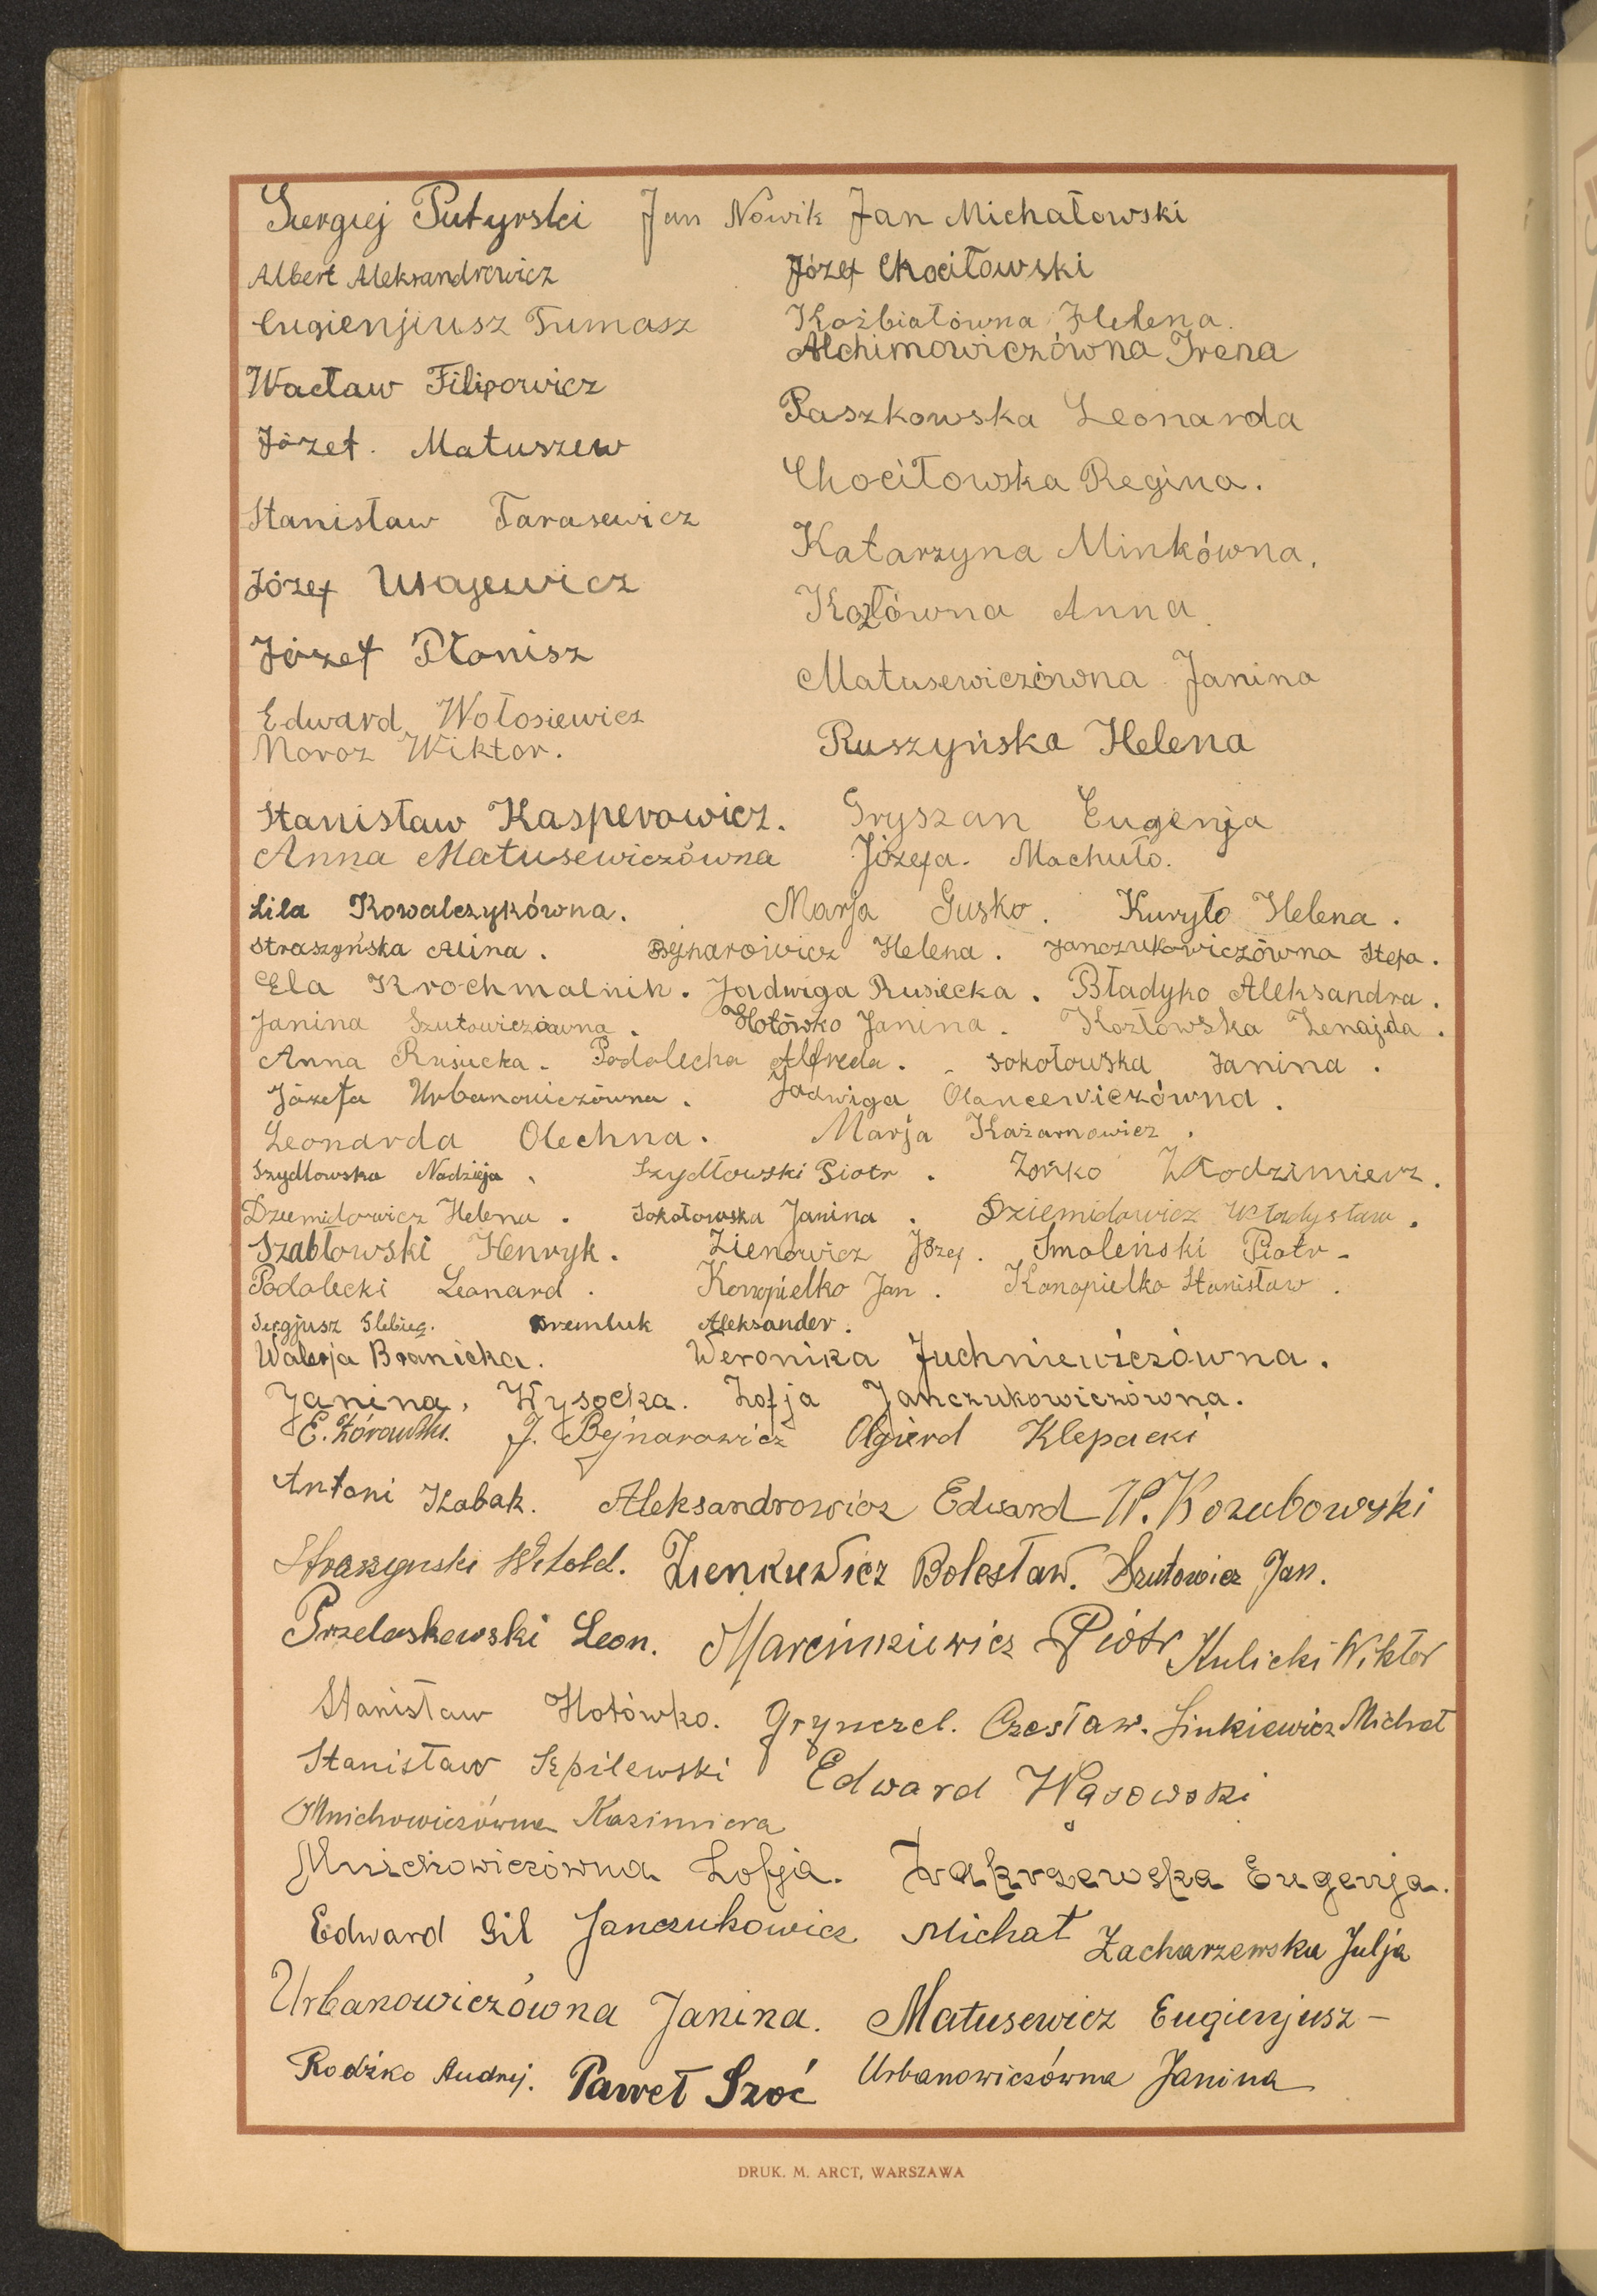 Siergiej Putyrski Jan Nowik Jan Michałowski
Albert Aleksandrowicz Józef Chociłowski
Eugienjiusz Tumasz Koźbiałówna Helena.
Alchimowiczówna Irena
Wacław Filipowicz
Paszkowska Leonarda
Józef. Matuszew
Chociłowska Regina.
Stanisław Tarasewicz
Katarzyna Minkówna.
Józef Usajewicz
Kozłówna Anna.
Józef Płonisz
Matusewiczówna Janina
Edward Wołosiewicz
Ruszyńska Helena
Moroz Wiktor.
Stanisław Kasperowicz. Gryszan Eugenja
Anna Matusewiczówna Józefa. Machuło.
Lila Kowalczykówna. Marja Gusko. Kuryło Helena.
Straszyńska Alina. Bejnarowicz Helena. Janczukowiczówna Stefa.
Ela Krochmalnik. Jadwiga Rusiecka. Bładyko Aleksandra.
Janina Szutowiczówna. Hotówko Janina. Kozłowska Zenajda.
Anna Rusiecka. Podolecka Alfreda. Sokołowska Janina.
Józefa Urbanowiczówna. Jadwiga Olancewiczówna.
Leonarda Olechna. Marja Każarnowicz.
Szydłowska Nadzieja. Szydłowski Piotr. Zońko Włodzimierz.
Dziemidowicz Helena. Sokołowska Janina. Dziemidowicz Władysław.
Szabłowski Henryk. Zienowicz Józef. Smoleński Piotr-
Podolecki Leonard. Konopielko Jan. Konopielko Stanisław.
Sergjusz Aleksander.
Walerja Branicka. Weronika Juchniewiczówna.
Janina, Wysocka. Zofja Janczukowiczówna.
E. J. Bejnarowicz Olgierd Klepacki
Antoni Kabak. Aleksandrowicz Edward W. Kozubowski
Straszynski Witold. Zienkiewicz Bolesław. Szutowicz Jan.
Przelaskowski Leon. Marcinkiewicz Piotr Kulicki Wiktor
Stanisław Hotówko. Grynczel. Czesław. Sinkiewicz Michał
Stanisław Szpilewski Edward Wąsowski
Mnichowiczówna Kazimiera
Mnichowiczówna Zofja. Zakrzewska Eugenja.
Edward Gil Janczukowicz Michał Zacharzewska Julja
Urbanowiczówna Janina. Matusewicz Eugienjusz -
Rodźko Andrej. Paweł Szoć Urbanowiczówna Janina
DRUK. M. ARCT, WARSZAWA